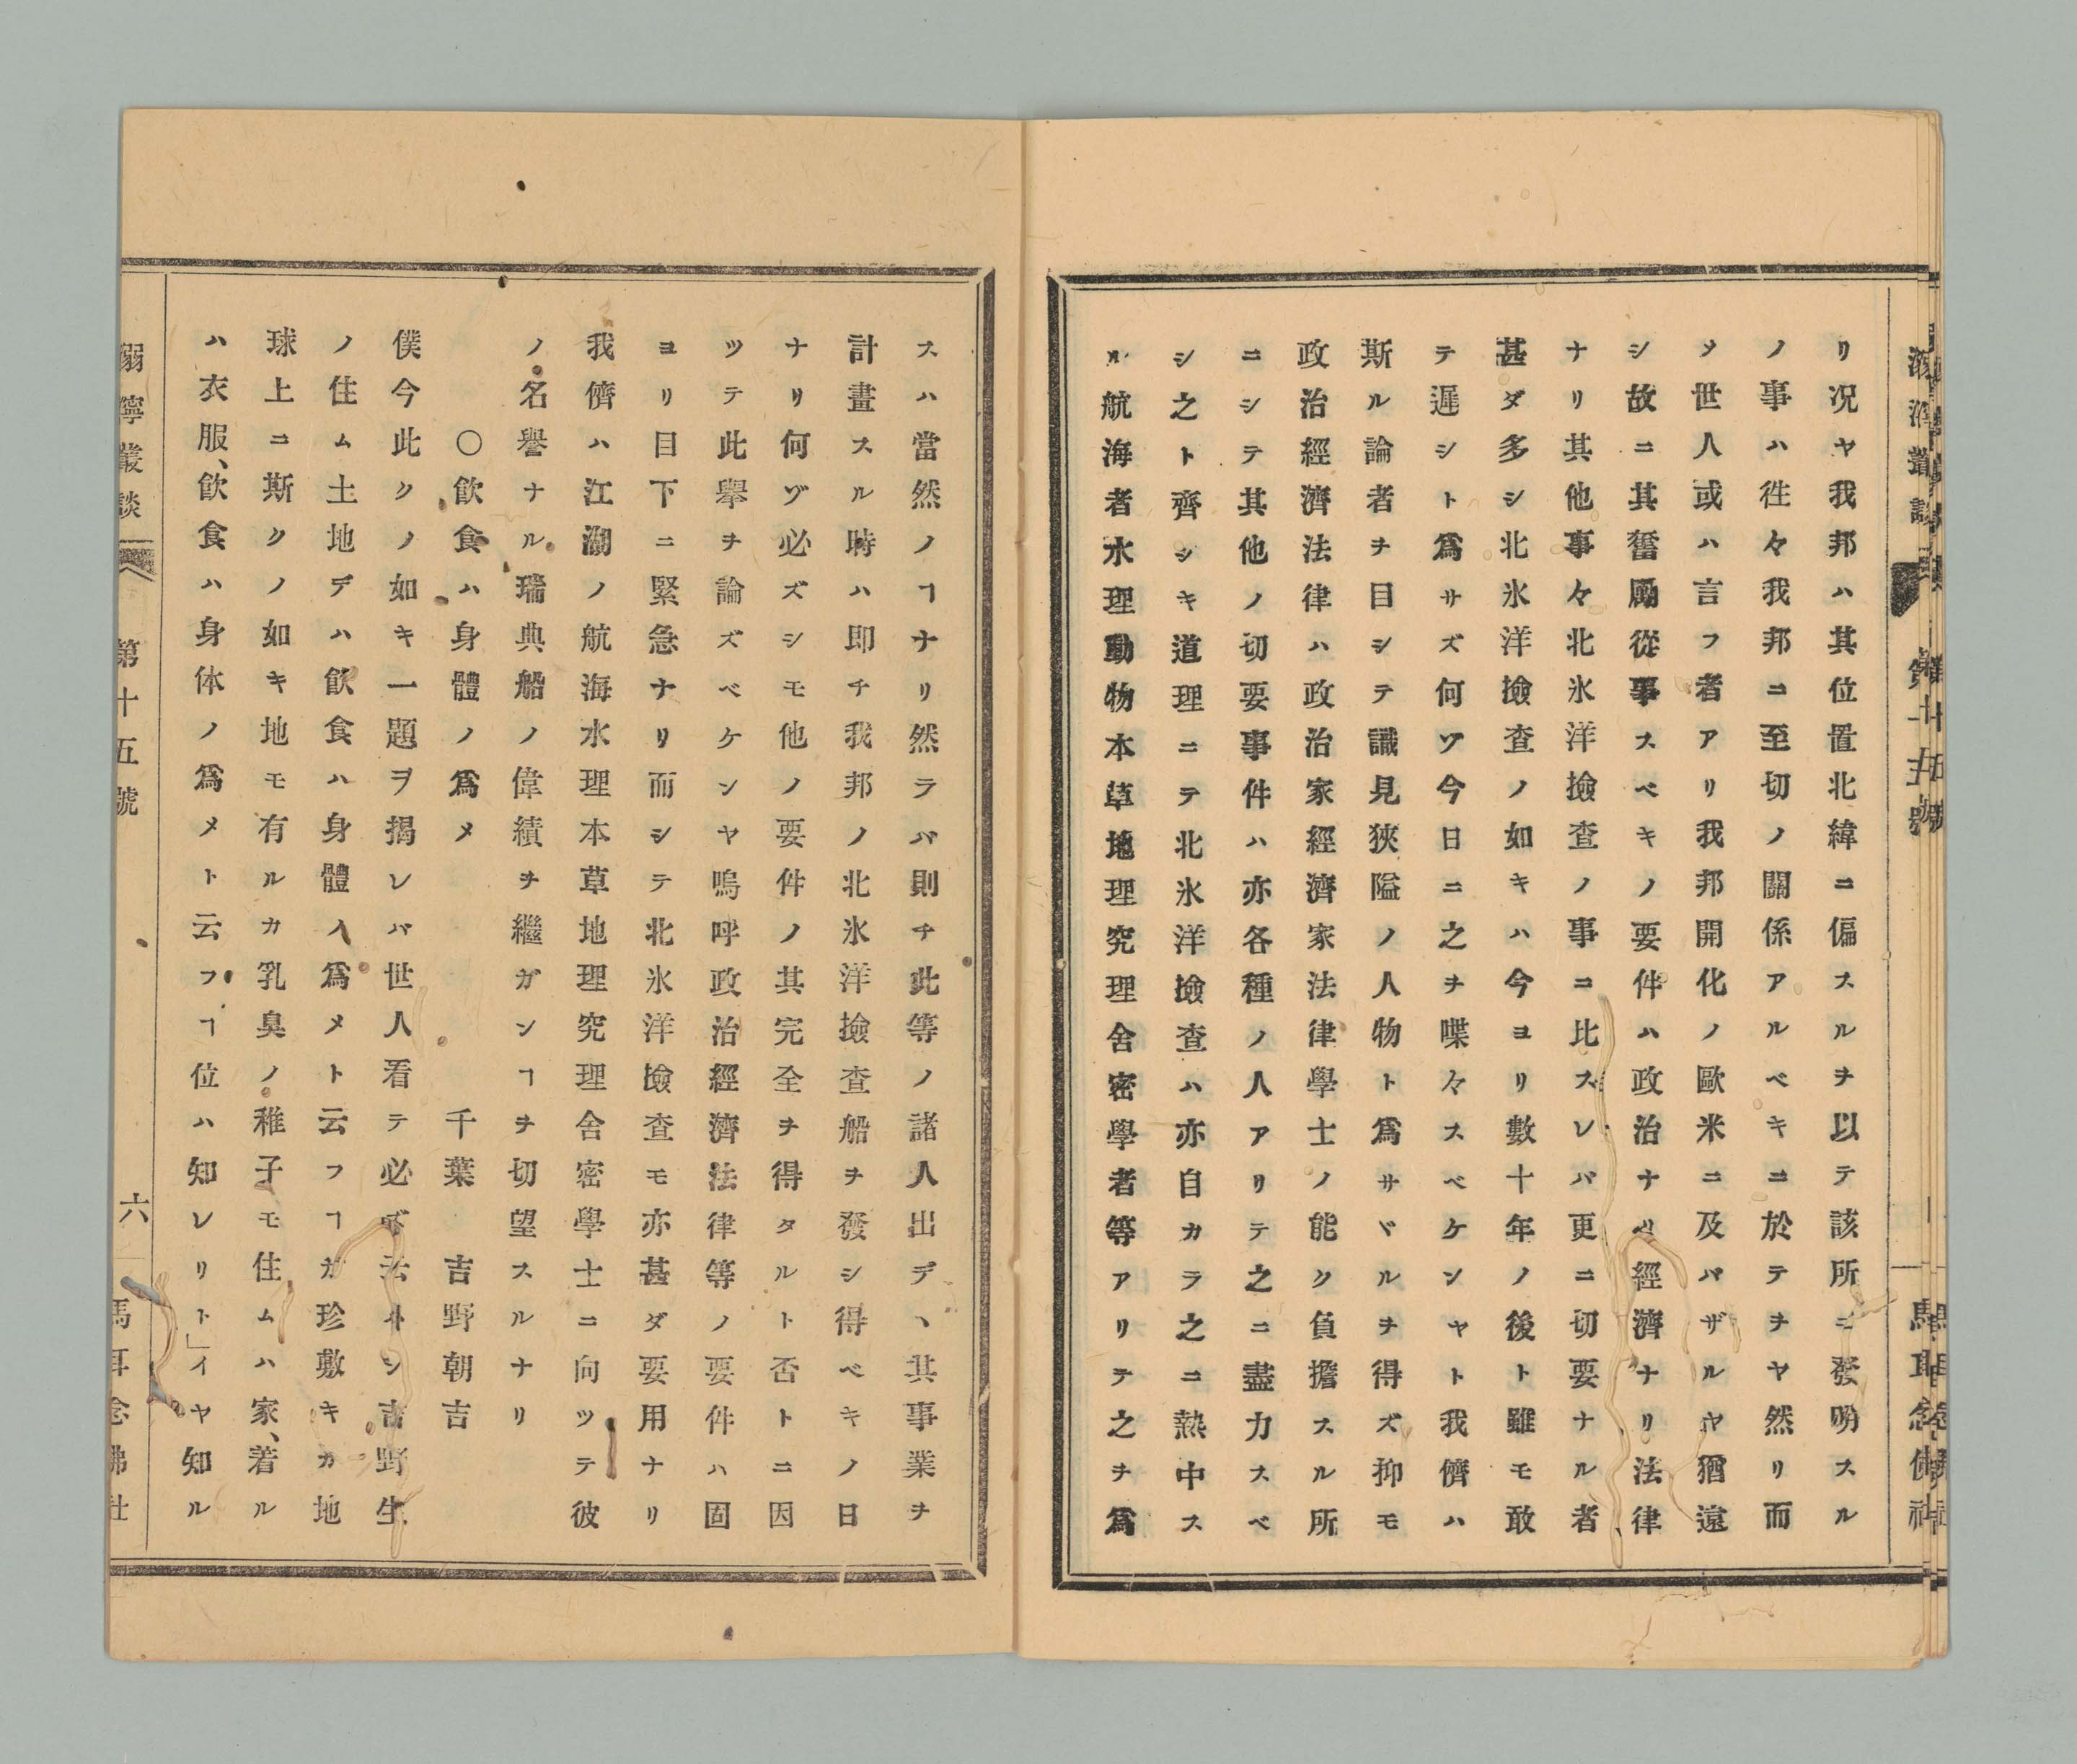 リ況ヤ我邦ハ其位置北緯ニ偏スルヲ以テ該所ニ發明スル
ノ事ハ徃々我邦ニ至切ノ關係アルベキニ於テヲヤ然リ而
メ世人或ハ言フ者アリ我邦開化ノ歐米ニ及バザルヤ猶遠
シ故ニ其奮勵從事スベキノ要件ハ政治ナリ經濟ナリ法律
ナリ其他事々北氷洋撿査ノ事ニ比スレバ更ニ切要ナル者
甚ダ多シ北氷洋撿査ノ如キハ今ヨリ數十年ノ後ト雖モ敢
テ遲シト爲サズ何ソ今日ニ之ヲ喋々スベケンヤト我儕ハ
斯ル論者ヲ目シテ識見狹隘ノ人物ト爲サヾルヲ得ズ抑モ
政治經濟法律ハ政治家經濟家法律學士ノ能ク負擔スル所
ニシテ其他ノ切要事件ハ亦各種ノ人アリテ之ニ盡力スベ
シ之ト齊シキ道理ニテ北氷洋撿査ハ亦自カラ之ニ熱中ス
ル航海者水理動物本草地理究理舍密學者等アリテ之ヲ爲
スハ當然ノヿナリ然ラバ則チ此等ノ諸人出デヽ其事業ヲ
計畫スル時ハ即チ我邦ノ北氷洋撿査船ヲ發シ得ベキノ日
ナリ何ゾ必ズシモ他ノ要件ノ其完全ヲ得タルト否トニ因
ツテ此擧ヲ論ズベケンヤ嗚呼政治經濟法律等ノ要件ハ固
ヨリ目下ニ緊急ナリ而シテ北氷洋撿査モ亦甚ダ要用ナリ
我儕ハ江湖ノ航海水理本草地理究理舍密學士ニ向ツテ彼
ノ名譽ナル瑞典船ノ偉績ヲ繼ガンヿヲ切望スルナリ
〇飮食ハ身體ノ爲メ　千葉　吉野朝吉
僕今此クノ如キ一題ヲ揭レバ世人看テ必ズ云ハン吉野生
ノ住ム土地デハ飮食ハ身體ノ爲メト云フヿガ珍敷キカ地
球上ニ斯クノ如キ地モ有ルカ乳臭ノ稚子モ住ムハ家、着ル
ハ衣服、飮食ハ身体ノ爲メト云フヿ位ハ知レリト」イヤ知ル
溺濘叢談　第十五號　六　馬耳念佛社